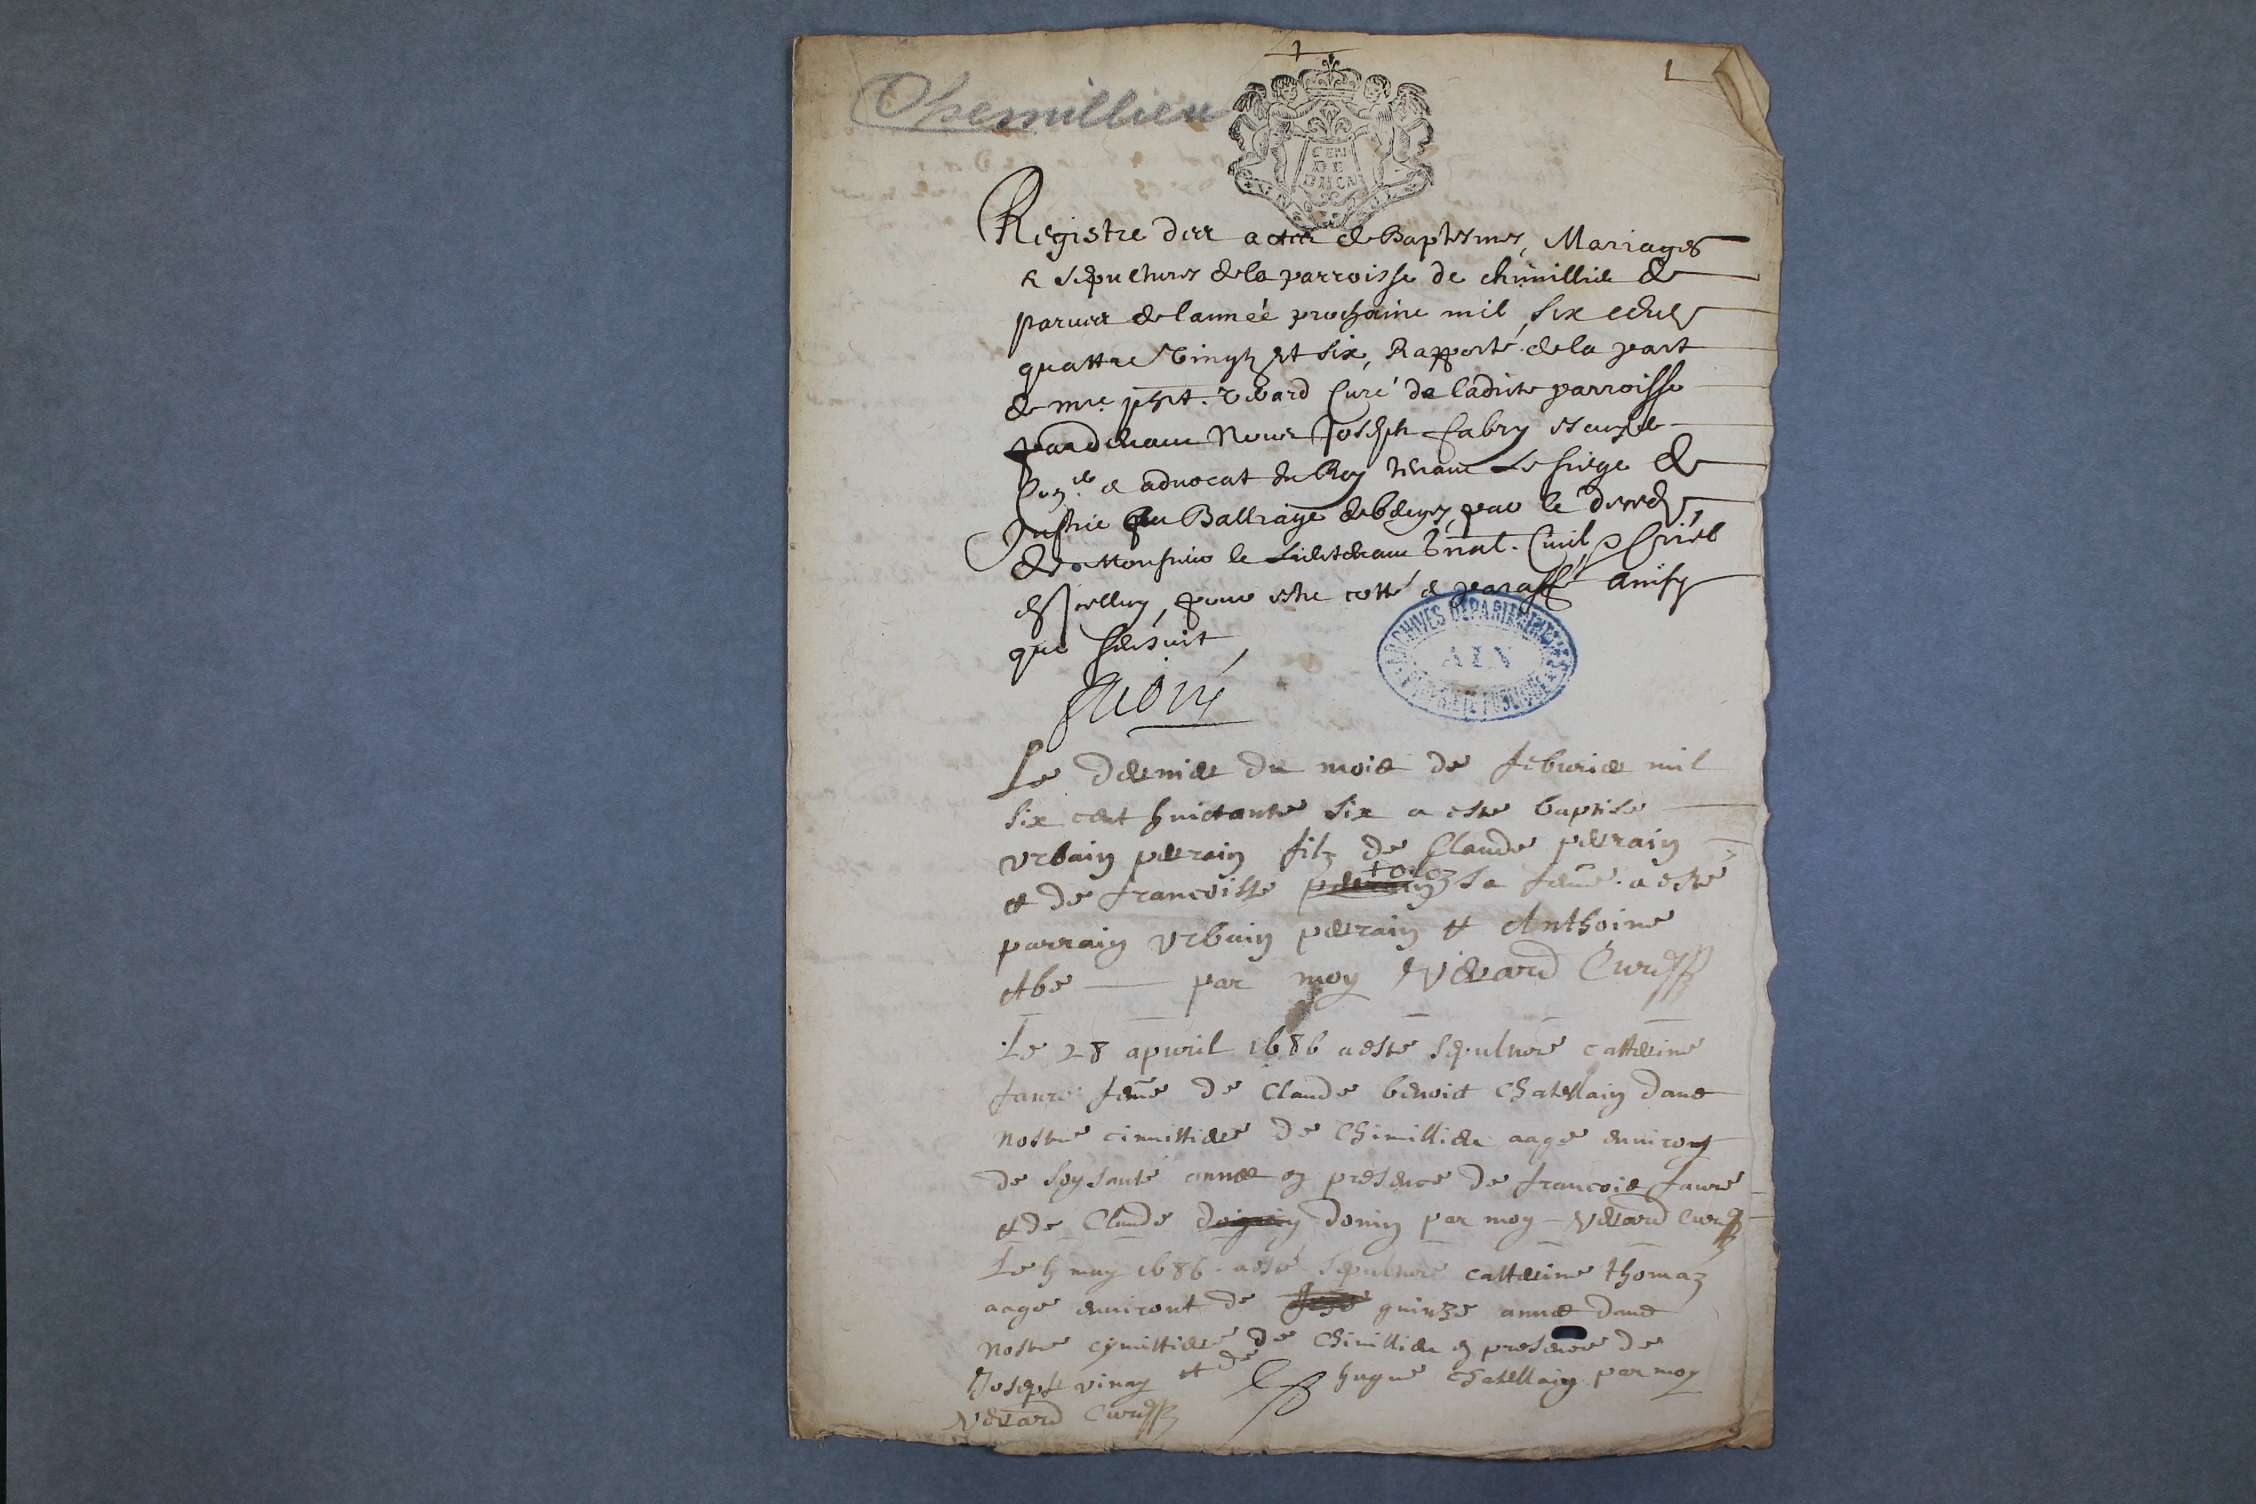 1
Chemillieu
GEN
DE
BOURG
Registre des actes de Baptesmes, Mariages
& sepultures de la parroisse de chimillie de
parves de l'année prochaine mil six cents
quattre Vingtz et six, Rapporté de la part
de mre. Vevard Curé de ladicte parroisse
pardevant Nous Joseph fabry escuyer
Conr. & advocat du Roy tenant Le siege de
Justice Au Balliage de belley, par le deces
de Monsieur le Lieutenant gnal. Civil &
d'icelluy, pour estre cotté & paraffé Ainsy
que sensuit,
ARCHIVES DEPARTEMENTALES
AIN
PROPRIETE PUBLIQUE
Le dernier du mois de feburier mil
six cent huictante six a este baptise
Urbain perrain filz de Claude perrain
& de francoisse sa feme. a esté
parrain Urbain perrain & Anthoine
Abe par moy Vevard Curé
Le 28 apuril 1686 a este sepulture catterine
faure feme de Claude benoict Chatellain dans
nostre cimittiere de Chimillieu aage environt
de soysante annee en presence de francois faure
& de Claude donin par moy Vevard Curé
Le 5 may 1686 a esté sepulture catterine thomaz
aage environt de quinze annee dans
nostre cymittiere de Chimillieu en presence de
Joseph vinay et de hugue Chatellain par moy
Vevard Curé